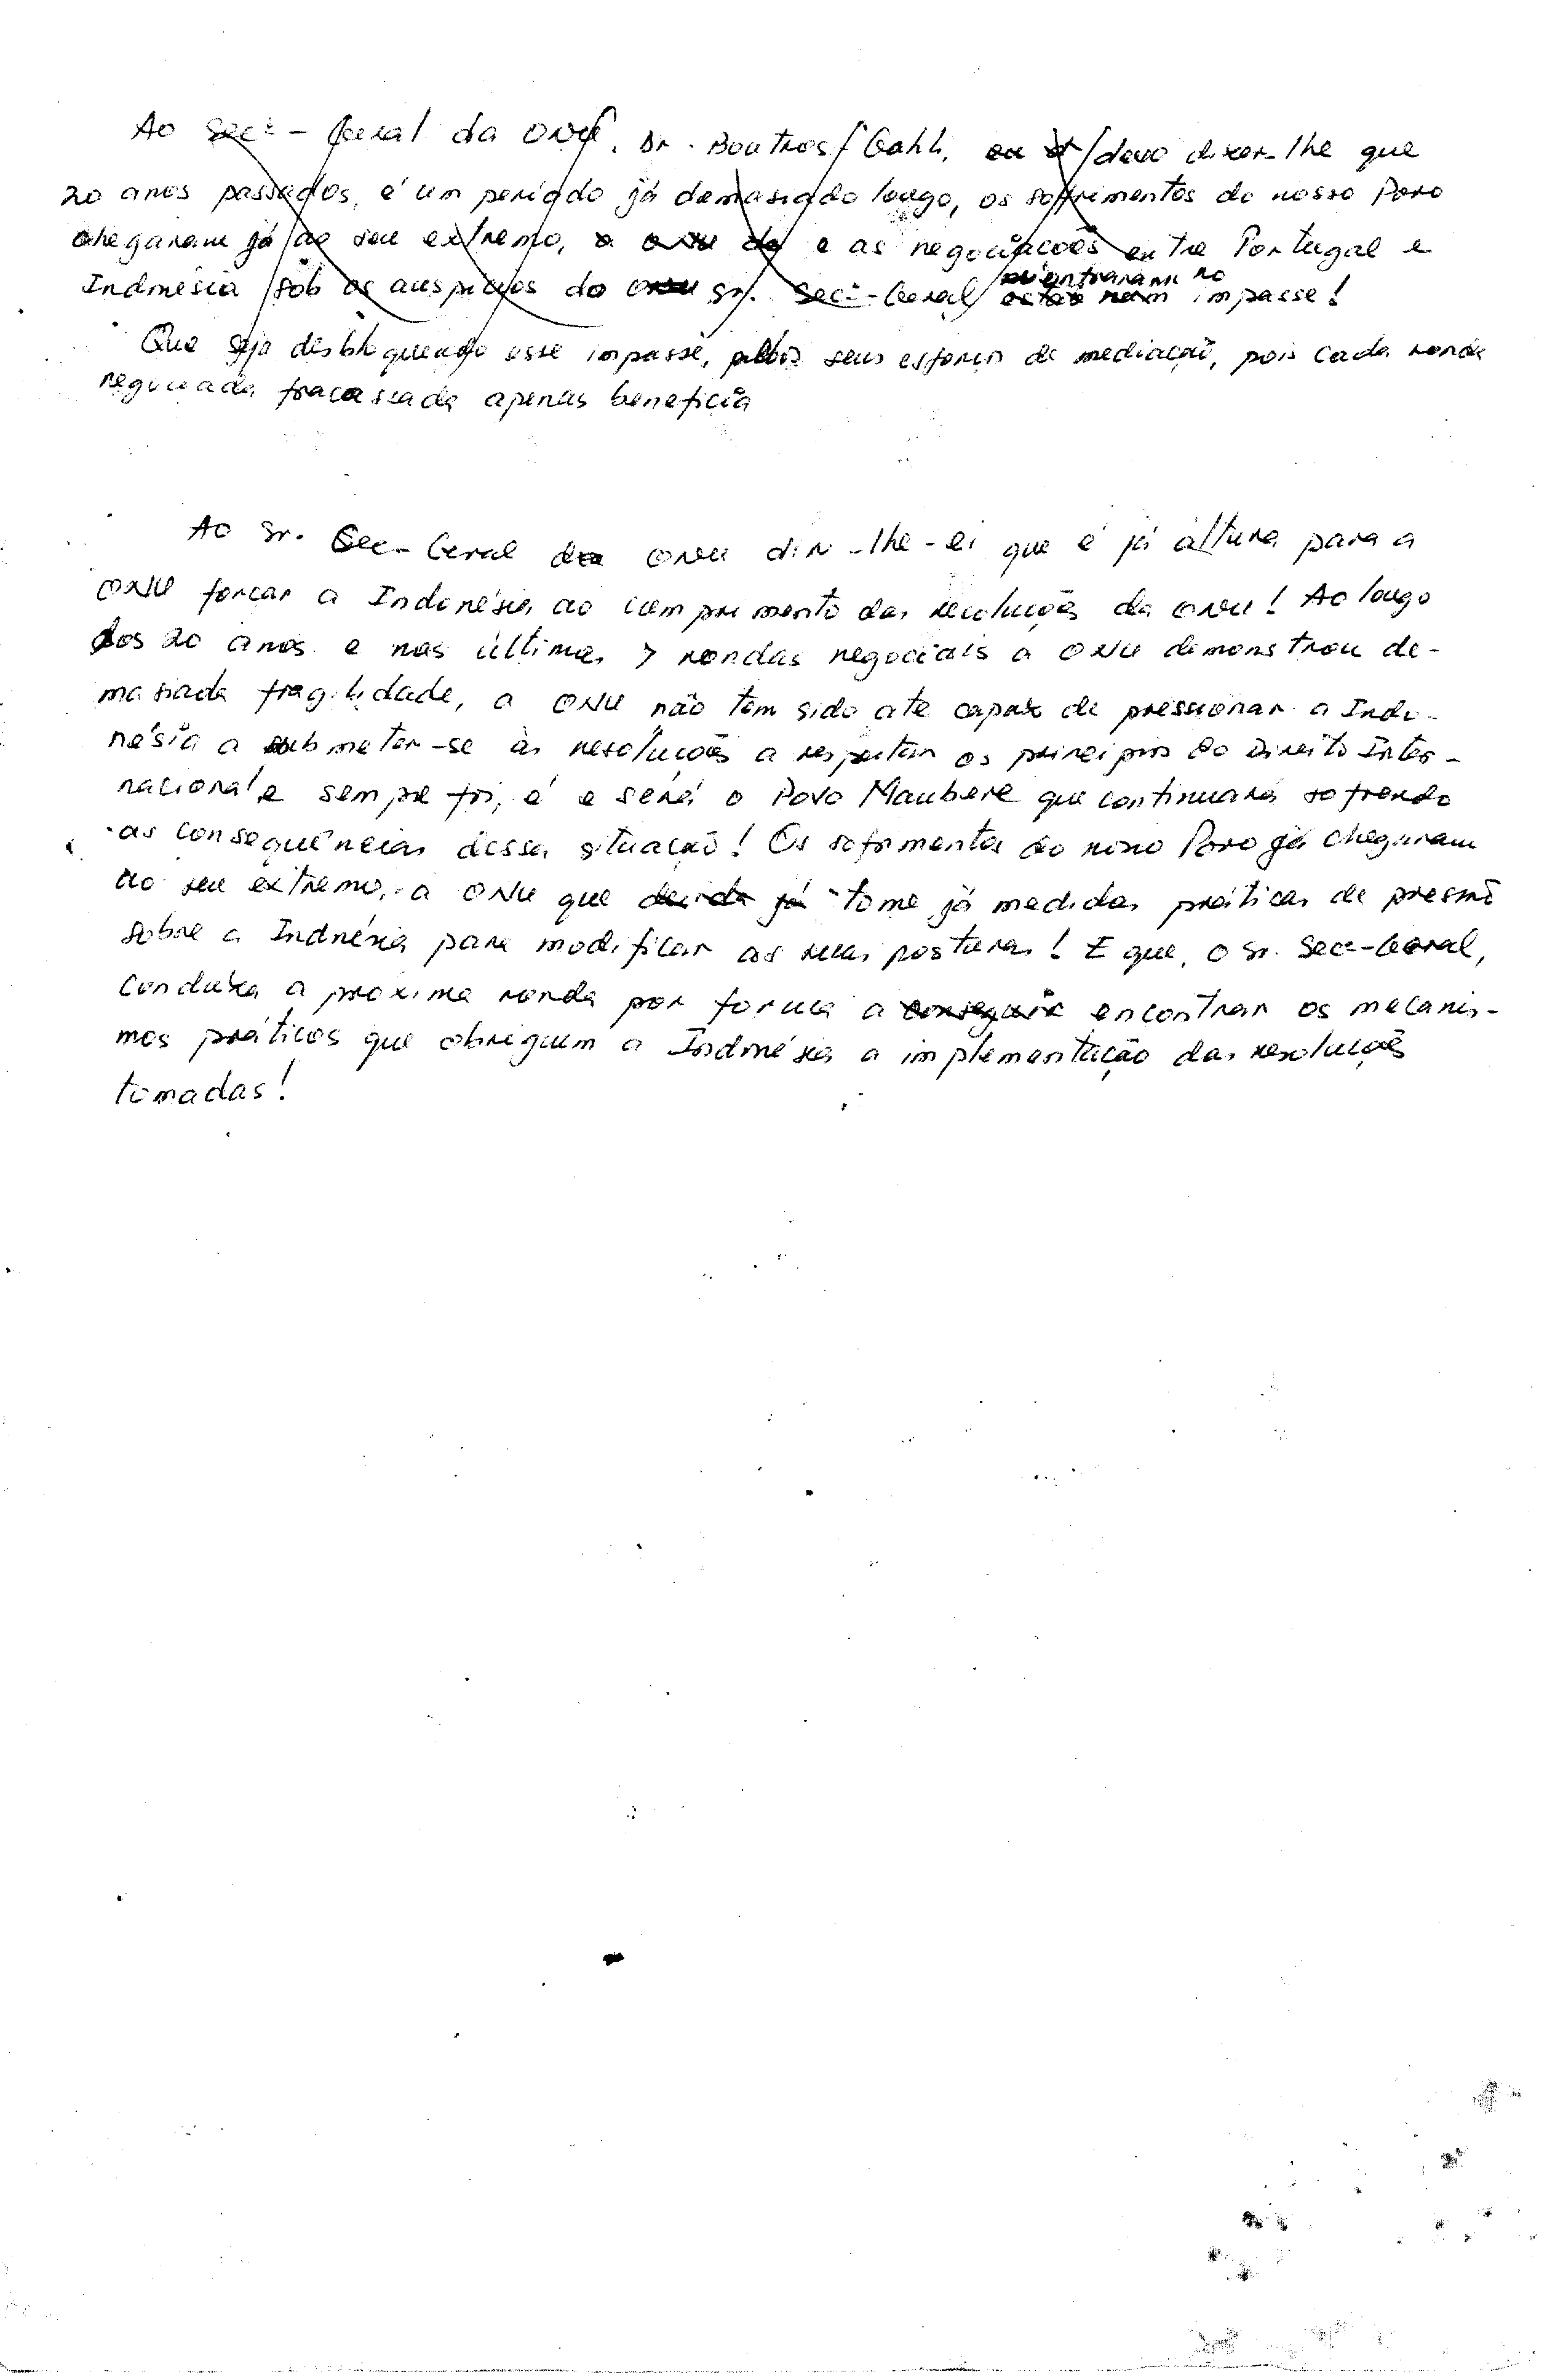 Ao Secº - Geral da ONU, Dr. Boutros Gahli, devo dizer-lhe que
20 anos passados, é um período já demasiado longo, os sofrimentos do nosso Povo
chegaram já ao seu extremo, e as negociações entre Portugal e
Indonésia sob os auspícios do Sr. Secº-Geral entraram no impasse!
Que seja desbloqueado esse impasse, pelos seus esforços de mediação, pois cada ronda
negociada fracassada apenas beneficia
Ao Sr. Sec-Geral da ONU dir-lhe-ei que é já altura para a
ONU forçar a Indonésia ao cumprimento das resoluções da ONU! Ao longo
dos 20 anos e nas últimas 7 rondas negociais a ONU demonstrou de-
masiada fragilidade, a ONU não tem sido até capaz de pressionar a Indo-
nésia a submeter-se às resoluções a respeitar os princípios do Direito Inter-
nacional e sempre foi, é e será o Povo Maubere que continuará sofrendo
as consequências dessa situação! Os sofrimentos do nosso Povo já chegaram
ao seu extremo, a ONU que tome já medidas práticas de pressão
sobre a Indonésia para modificar as suas posturas! E que, o Sr. Secº-Geral,
conduza a próxima ronda por forma a encontrar os mecanis-
mos práticos que obriguem a Indonésia a implementação das resoluções
tomadas!